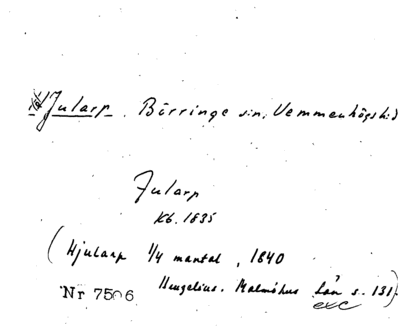 Jularp. Börringe sn, Vemmenhögs hd
Jularp
Kb. 1835
(Hjularp 1/4 mantal, 1840
Heugelius. Malmöhus län s. 131)
exc
Nr 7506